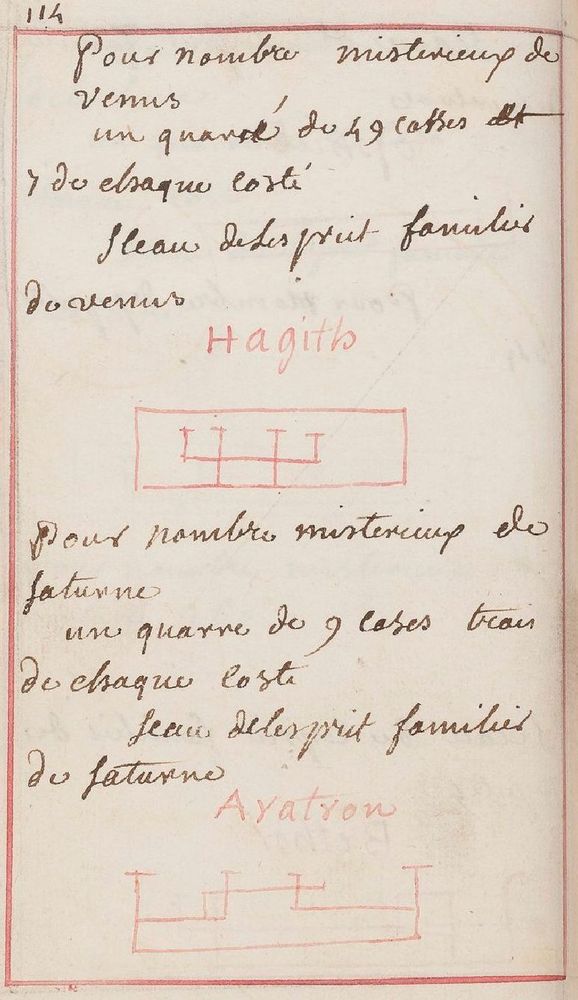 114
Pour nombre misterieux de
venus
un quarré de 49 casses et
7 de chaque costé
sceau de lesprit familier
de venus
Hagith
Pour nombre misterieux de
saturne
un quarre de 9 cases trois
de chaque coste
seau de lesprit familier
de saturne
Aratron